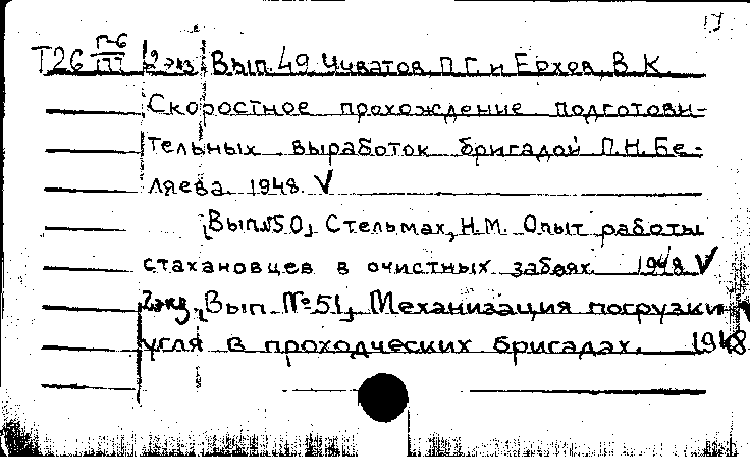 Т26 П-6 2 экз. Вып. 49 Чиватов, П.Г. и Ерхов, В.К.
Скоростное прохождение подготови-
тельных выработок бригадой П.Н. Бе-
ляева. 1948. V
[Вып.№50] Стельмах, Н.М. Опыт работы
стахановцев в очистных забоях. 1948 V
2 экз. [Вып. №51] Механизация погрузки
угля в проходческих бригадах. 1948